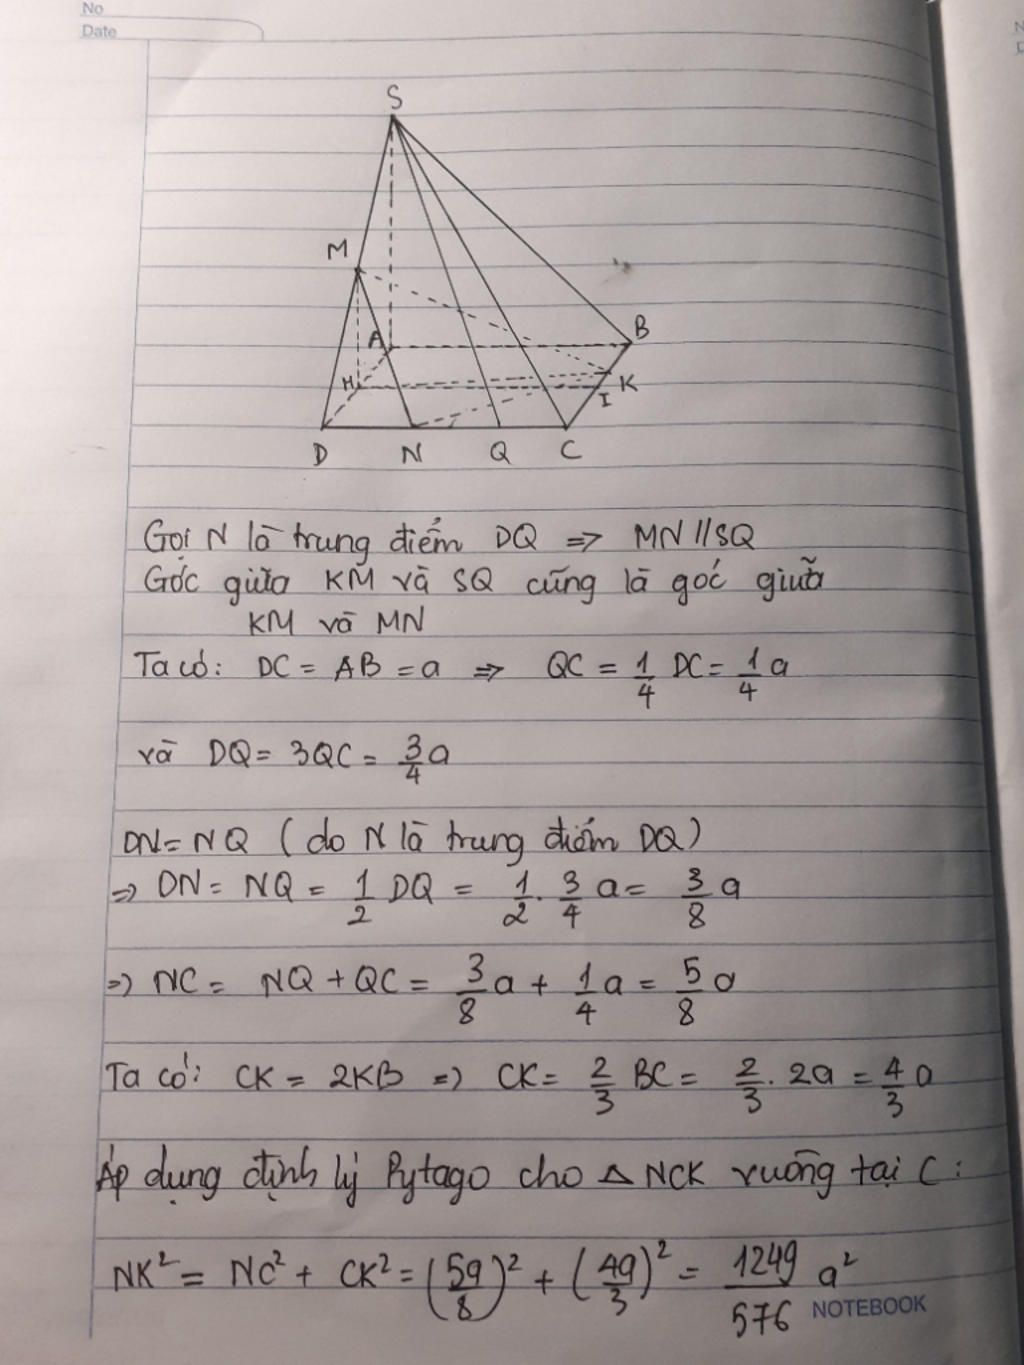 No
Date
S
M
A
B
H
K
I
D N Q C
Gọi N là trung điểm DQ => MN // SQ
Góc giữa KM và SQ cũng là góc giữa
KM và MN
Ta có: DC = AB = a => QC = 1/4 DC = 1/4 a
và DQ = 3QC = 3/4 a
DN = NQ ( do N là trung điểm DQ)
=> DN = NQ = 1/2 DQ = 1/2 . 3/4 a = 3/8 a
=> NC = NQ + QC = 3/8 a + 1/4 a = 5/8 a
Ta có: CK = 2KB => CK = 2/3 BC = 2/3 . 2a = 4/3 a
Áp dụng định lý Pytago cho △ NCK vuông tại C :
NK² = NC² + CK² = (5a/8)² + (4a/3)² = 1249/576 a²
NOTEBOOK